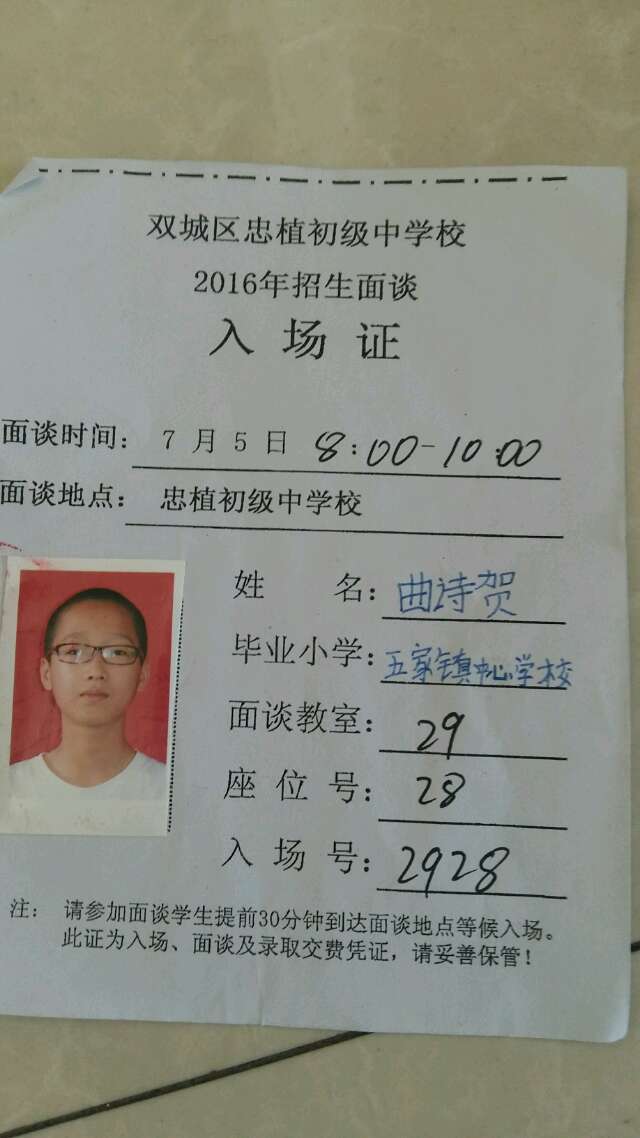 双城区忠植初级中学校
2016年招生面谈
入场证
面谈时间: 7月5日 8:00-10:00
面谈地点: 忠植初级中学校
姓名: 曲诗贺
毕业小学: 五家镇中心学校
面谈教室: 29
座位号: 28
入场号: 2928
注: 请参加面谈学生提前30分钟到达面谈地点等候入场。
此证为入场、面谈及录取交费凭证，请妥善保管!